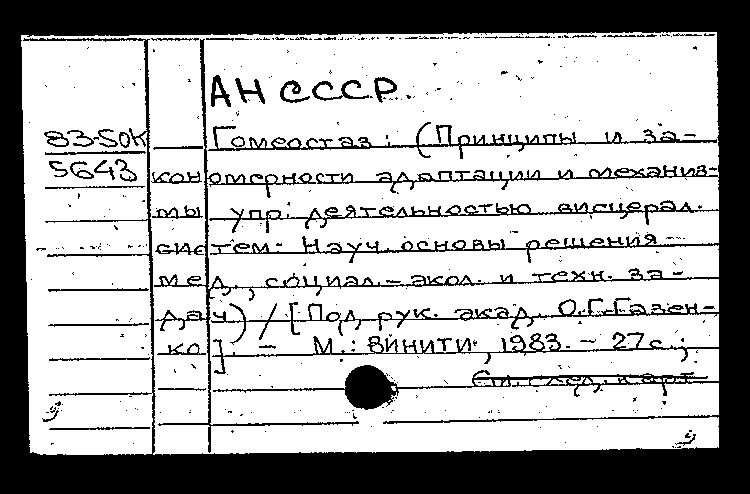 АН СССР
83-5ОК
5643
Гомеостаз: (Принципы и за-
кономерности адаптации и механиз-
мы упр. деятельностью висцерал.
систем. Науч. основы решения
мед., социал.-экол. и техн. за-
дач) / [Под рук. акад. О.Г.Газен-
ко]. – М.: ВИНИТИ, 1983. – 27с.;
См. след. карт